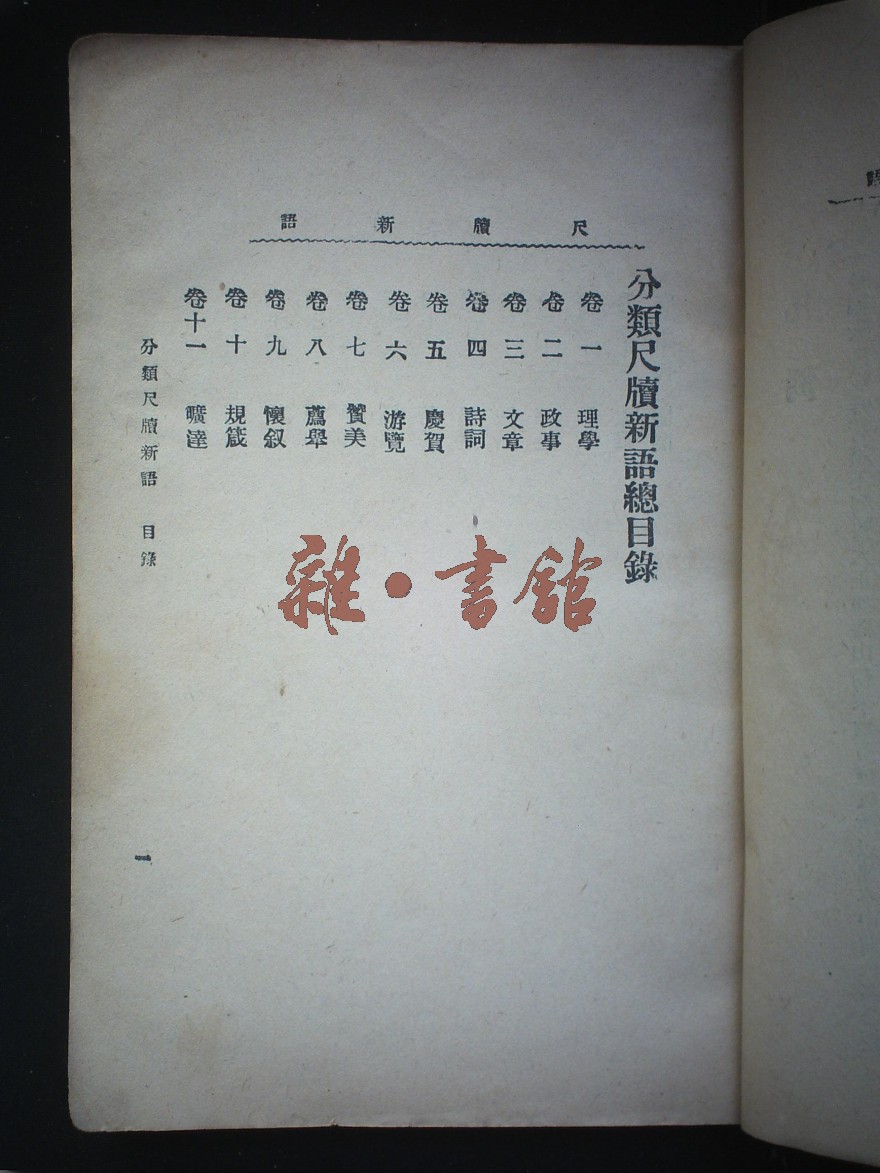 尺牘新語
分類尺牘新語總目錄
卷一 理學
卷二 政事
卷三 文章
卷四 詩詞
卷五 慶賀
卷六 游覽
卷七 贊美
卷八 薦舉
卷九 懷叙
卷十 規箴
卷十一 曠達
分類尺牘新語 目錄
一
雜·書館